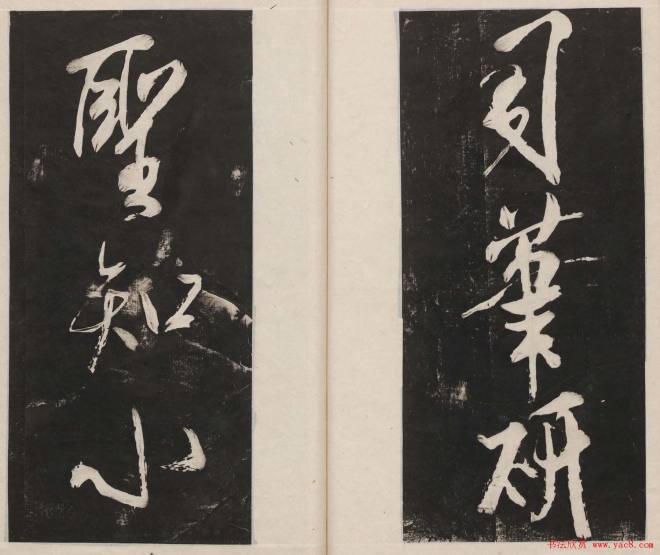 司業研
聖知小
书法欣赏 www.yac8.com